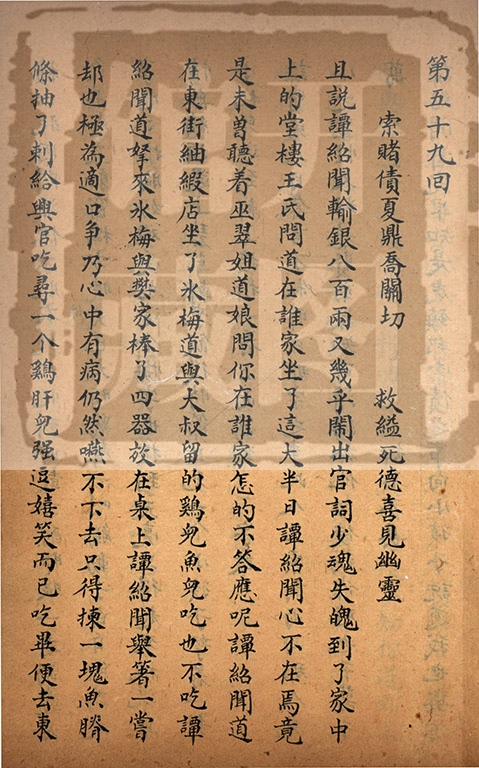 第五十九回
索賭債夏鼎喬關切　救縊死德喜見幽靈
且説譚紹聞輸銀八百兩又幾乎鬧出官詞少魂失魄到了家中
上的堂樓王氏問道在誰家坐了這大半日譚紹聞心不在焉竟
是未曽聽着巫翠姐道娘問你在誰家怎的不答應呢譚紹聞道
在東街紬緞店坐了氷梅道與大叔留的鷄兒魚兒吃也不吃譚
紹聞道拏來氷梅與樊家捧了四器放在桌上譚紹聞舉箸一嘗
却也極為適口争乃心中有病仍然嚥不下去只得揀一塊魚脊
條抽了刺給興官吃尋一个鷄肝兒强逗嬉笑而已吃畢便去東